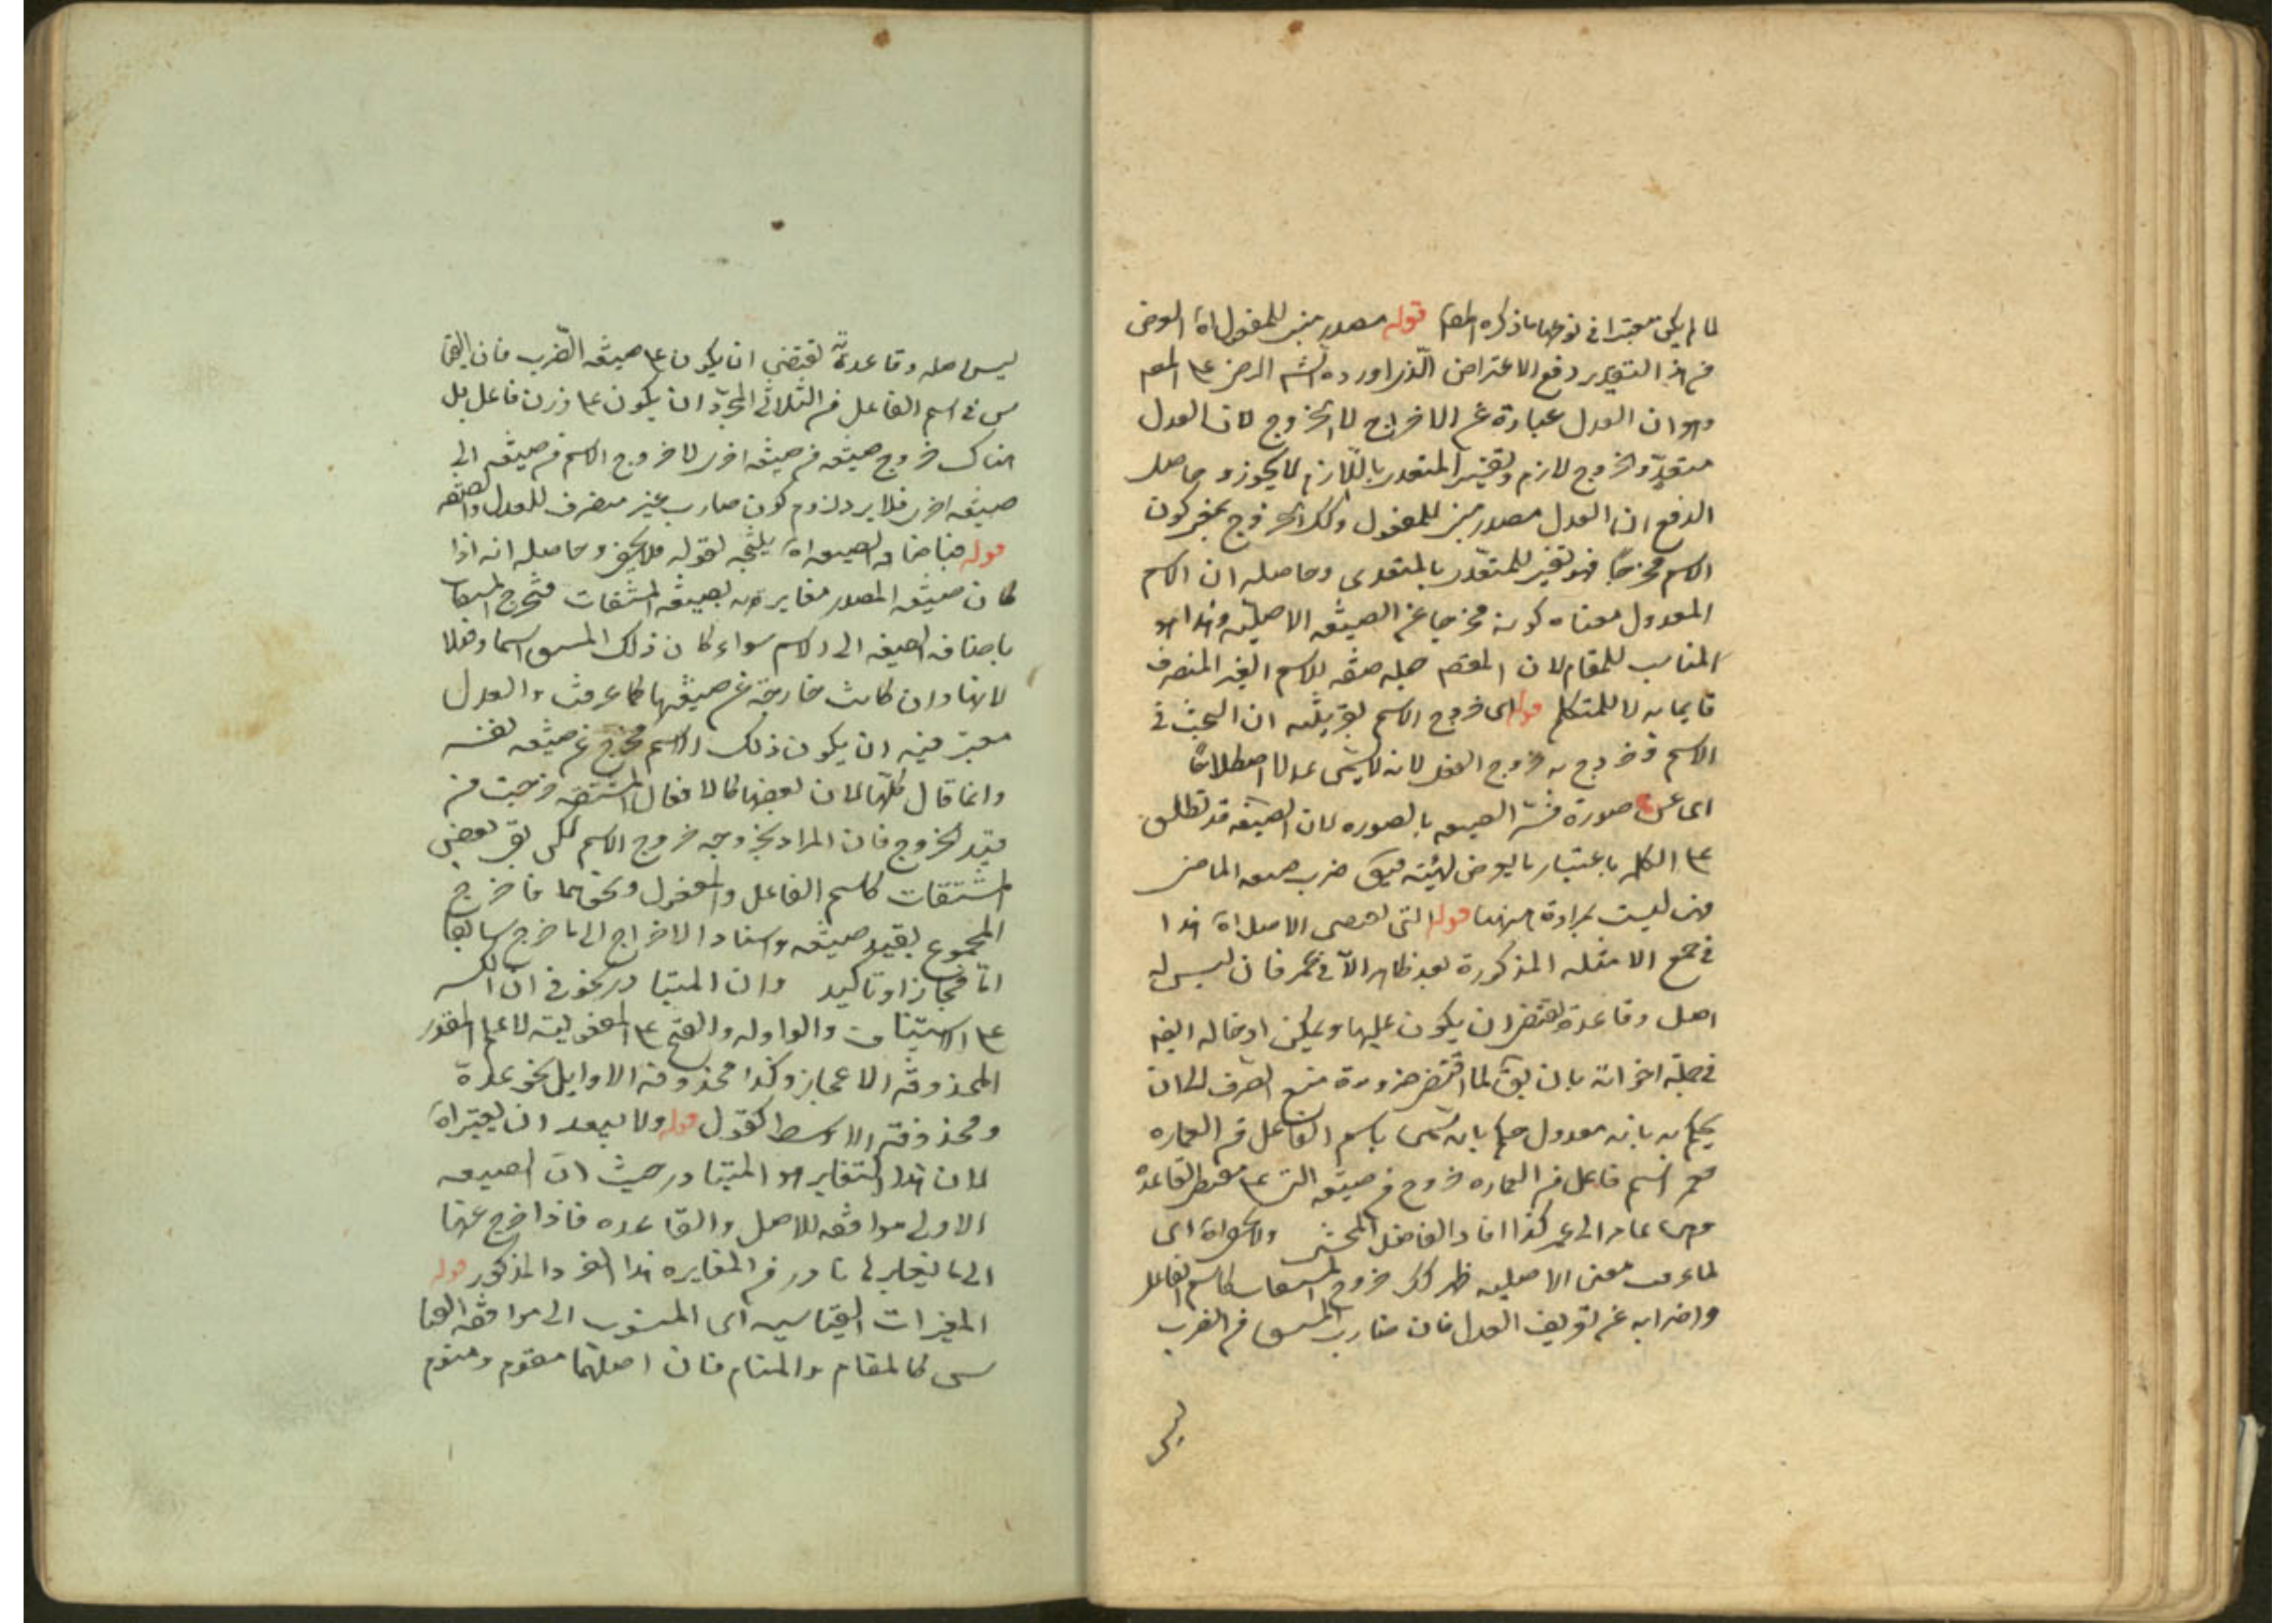 لما لم يكن معتبرا في نوعها ما ذكره المصـ قوله مصدر مبنى للمفعول اه الغرض
من هذا التقدير دفع الاعتراض الذى اورده الشـ الرضى على المصـ
وهو ان العدل عبارة عن الاخراج لا الخروج لان العدل
متعد والخروج لازم وتفسير المتعدى باللازم لا يجوز وحاصل
الدفع ان العدل مصدر مبنى للمفعول وكذلك الخروج بمعنى كون
الاسم مخرجا فهو تفسير للمتعدى بالمتعدى وحاصله ان الاسم
المعدول معناه كونه مخرجا عن الصيغه الاصليه وهذا هو
المناسب للمقام لان المصـ جعله صفه للاسم الغير المنصرف
قايما به لا للمتكلم قوله اى خروج الاسم بقرينه ان البحث في
الاسم فخروج به خروج الفعل لانه لا يسمى عدلا اصطلاحا
اى عن صورة فسر الصيغه بالصوره لان الصيغه قد تطلق
على الكل باعتبار ما يعرض ضرب صيغه الماضى
وهى ليست بمرادة ههنا قوله التى تقتضى الاصل اه هذا
في جميع الامثله المذكورة بعد ظاهر الا في عمر فان ليس له
اصل وقاعدة تقتضى ان يكون عليها ويمكن ادخاله ايضا
في جملة اخواته بان يقـ لما اقتضى ضرورة منع الصرف لان
يحكم به بانه معدول حكم بانه سمى باسم الفاعل من العماره
فعمر اسم فاعل من العماره خروج من صيغه التى على مقتضى القاعدة
وهى عامر الى عمر كذا افاد الفاضل المحشى اى
لما عرفت معنى الاصليه ظهر لك خروج المشتقات كاسم الفاعل
واضرابه عن تعريف العدل فان ضارب المشتق من الضرب
ليس
ليس اصله وقاعدة تقتضى ان يكون على صيغه الضرب فان القيا
س في اسم الفاعل من الثلاثى المجرد ان يكون على وزن فاعل بل
هناك خروج صيغه من صيغه اخرى لا خروج الاسم من صيغه الى
صيغه اخرى فلا يرد لزوم كون ضارب غير منصرف للعدل والصفه
قوله فباضافه الصيغه اه لقوله فلا يخفى وحاصله انه اذا
كان صيغه المصدر مغايرة لصيغه المشتقات فتخرج المشتقات
باضافه الصيغه الى الاسم سواء كان ذلك المشتق اسما او فعلا
لانها وان كانت خارجة عن صيغها كما عرفت والعدل
معتبر فيه ان يكون ذلك الاسم مخرج عن صيغه نفسه
وانما قال كلها لان بعضها كالافعال المشتقه خرجت من
قيد الخروج فان المراد بخروجه خروج الاسم لكن بقى بعض
المشتقات كاسم الفاعل والمفعول ونحوهما فاخرج
المجموع بقيد صيغه واسناد الاخراج الى ما خرج سابقا
اما مجاز او تاكيد وان المتبادر نحو في ان الكسر
على الاستيناف والواو له والفتح على المفعوليه لا على المقدر
المحذوفه الاعجاز وكذا محذوفه الاوايل نحو عدة
ومحذوفه الاوسط كمقول قوله ولا يبعد ان يعتبر اه
لان هذا التغاير هو المتبادر حيث ان الصيغه
الاولى موافقه للاصل والقاعده فاذا خرج عنها
الى ما يغاير لها تبادر من المغايره هذا الفرد المذكور قوله
المغيرات القياسيه اى المنسوب الى موافقه القيا
سى كالمقام والمنام فان اصلهما مقوم ومنوم